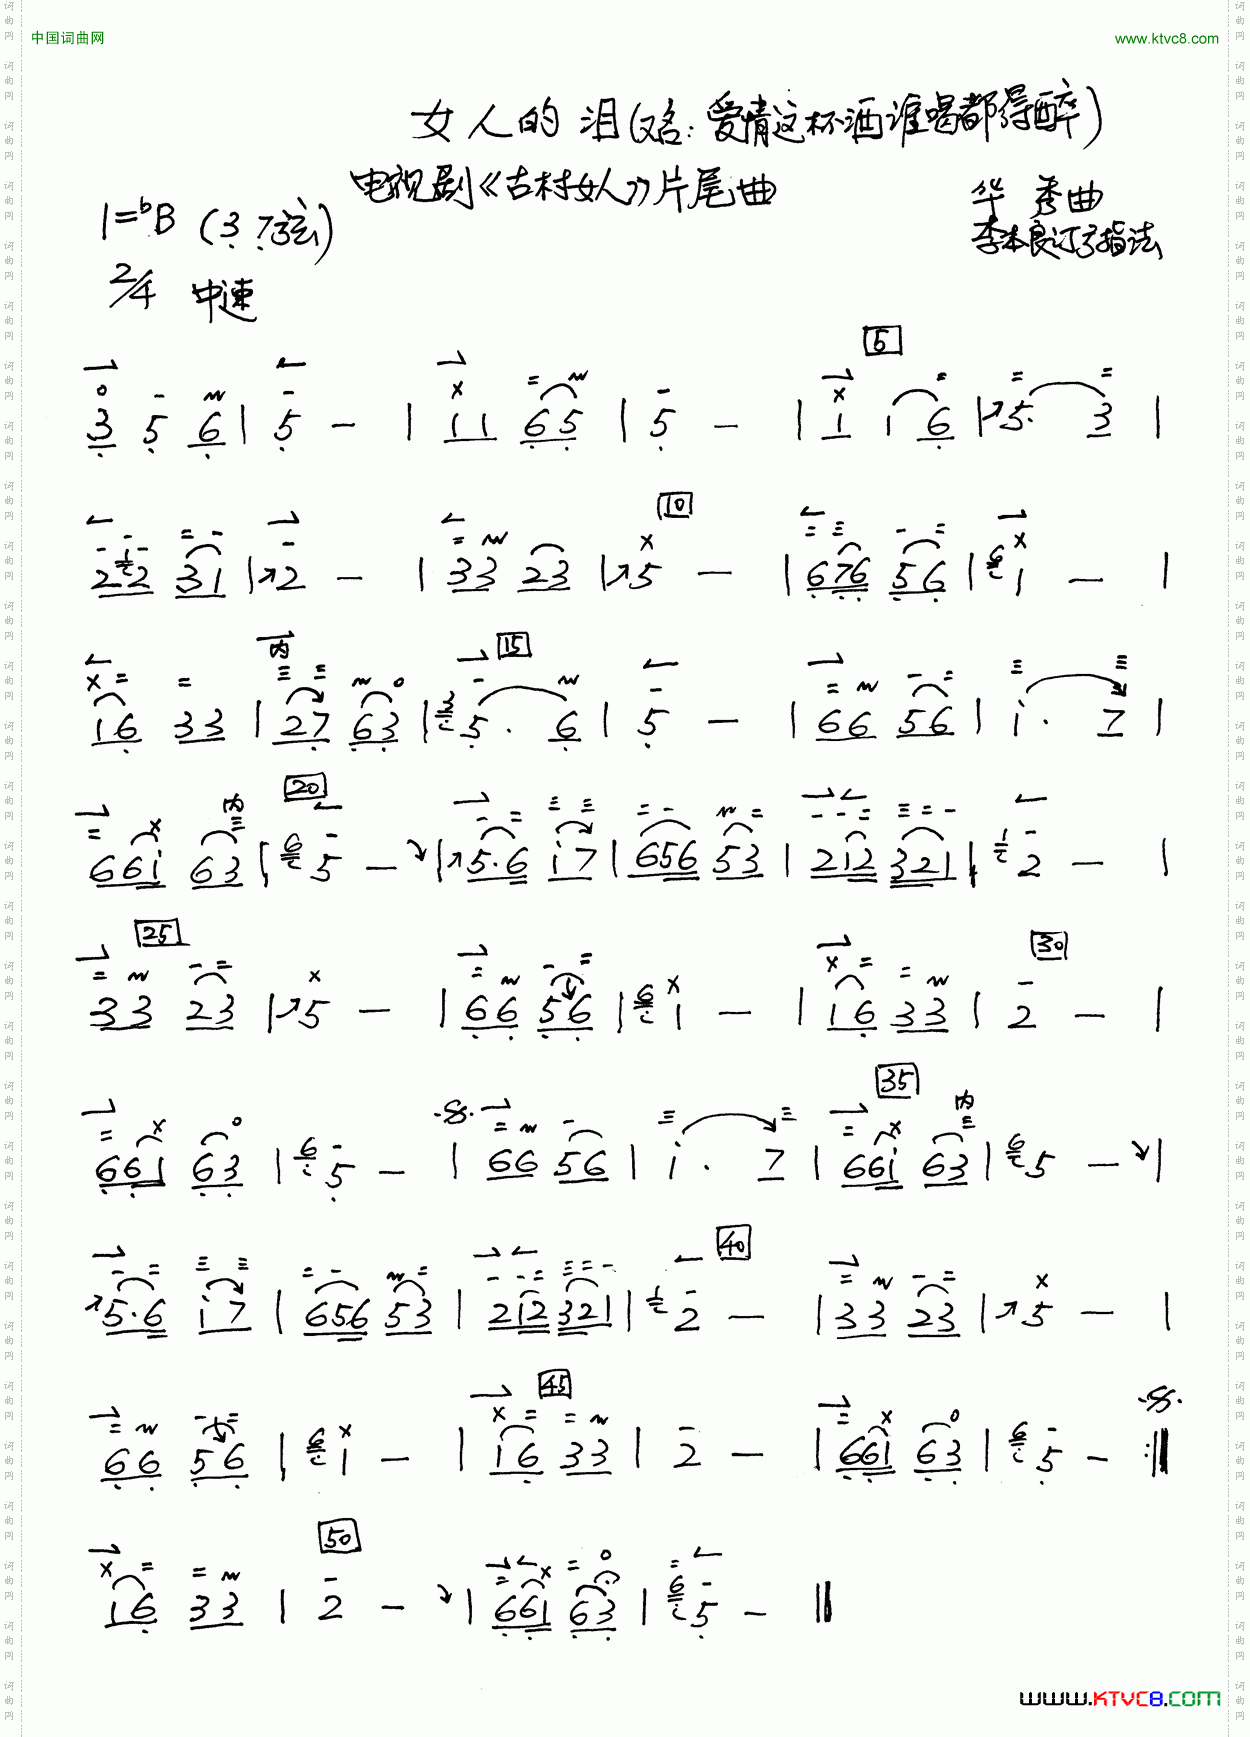 中国词曲网 www.ktvc8.com
女人的泪(又名:爱情这杯酒谁喝都得醉)
电视剧《古村女人》片尾曲
1=ᵇB (3 7弦) 华秀曲
李本良订弓指法
2/4 中速
5
3 5 6 | 5 — | 11 65 | 5 — | 1 i 6 | 5. 3 |
10
2 2 31 | 2 — | 33 23 | 5 — | 676 56 | 1 — |
内 15
16 33 | 27 63 | 5. 6 | 5 — | 66 56 | i. 7 |
内 20
66i 63 | 5 — | 5.6 i7 | 656 53 | 212 321 | 2 — |
25 30
33 23 | 5 — | 66 56 | 1 — | 16 33 | 2 — |
35 内
661 63 | 5 — | 66 56 | i. 7 | 66i 63 | 5 — |
40
5.6 i7 | 656 53 | 212 321 | 2 — | 33 23 | 5 — |
45
66 56 | 1 — | 16 33 | 2 — | 661 63 | 5 — :||
50
16 33 | 2 — | 661 63 | 5 — ||
www.KTVC8.com